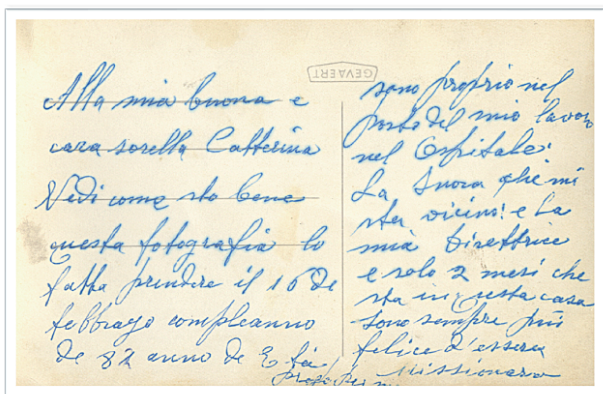 GEVAERT
Alla mia buona e
cara sorella Catterina
Vedi come sto bene
questa fotografia lo
fatta prindere il 16 de
febbrajo compleanno
de 82 anno de Età
sono proprio nel
posto del mio lavoro
nel Ospitale:
La Suora che mi
sta vicino: e La
mia Direttrice
e solo 2 mesi che
sta in questa casa
sono sempre più
felice d'essere
Missionara